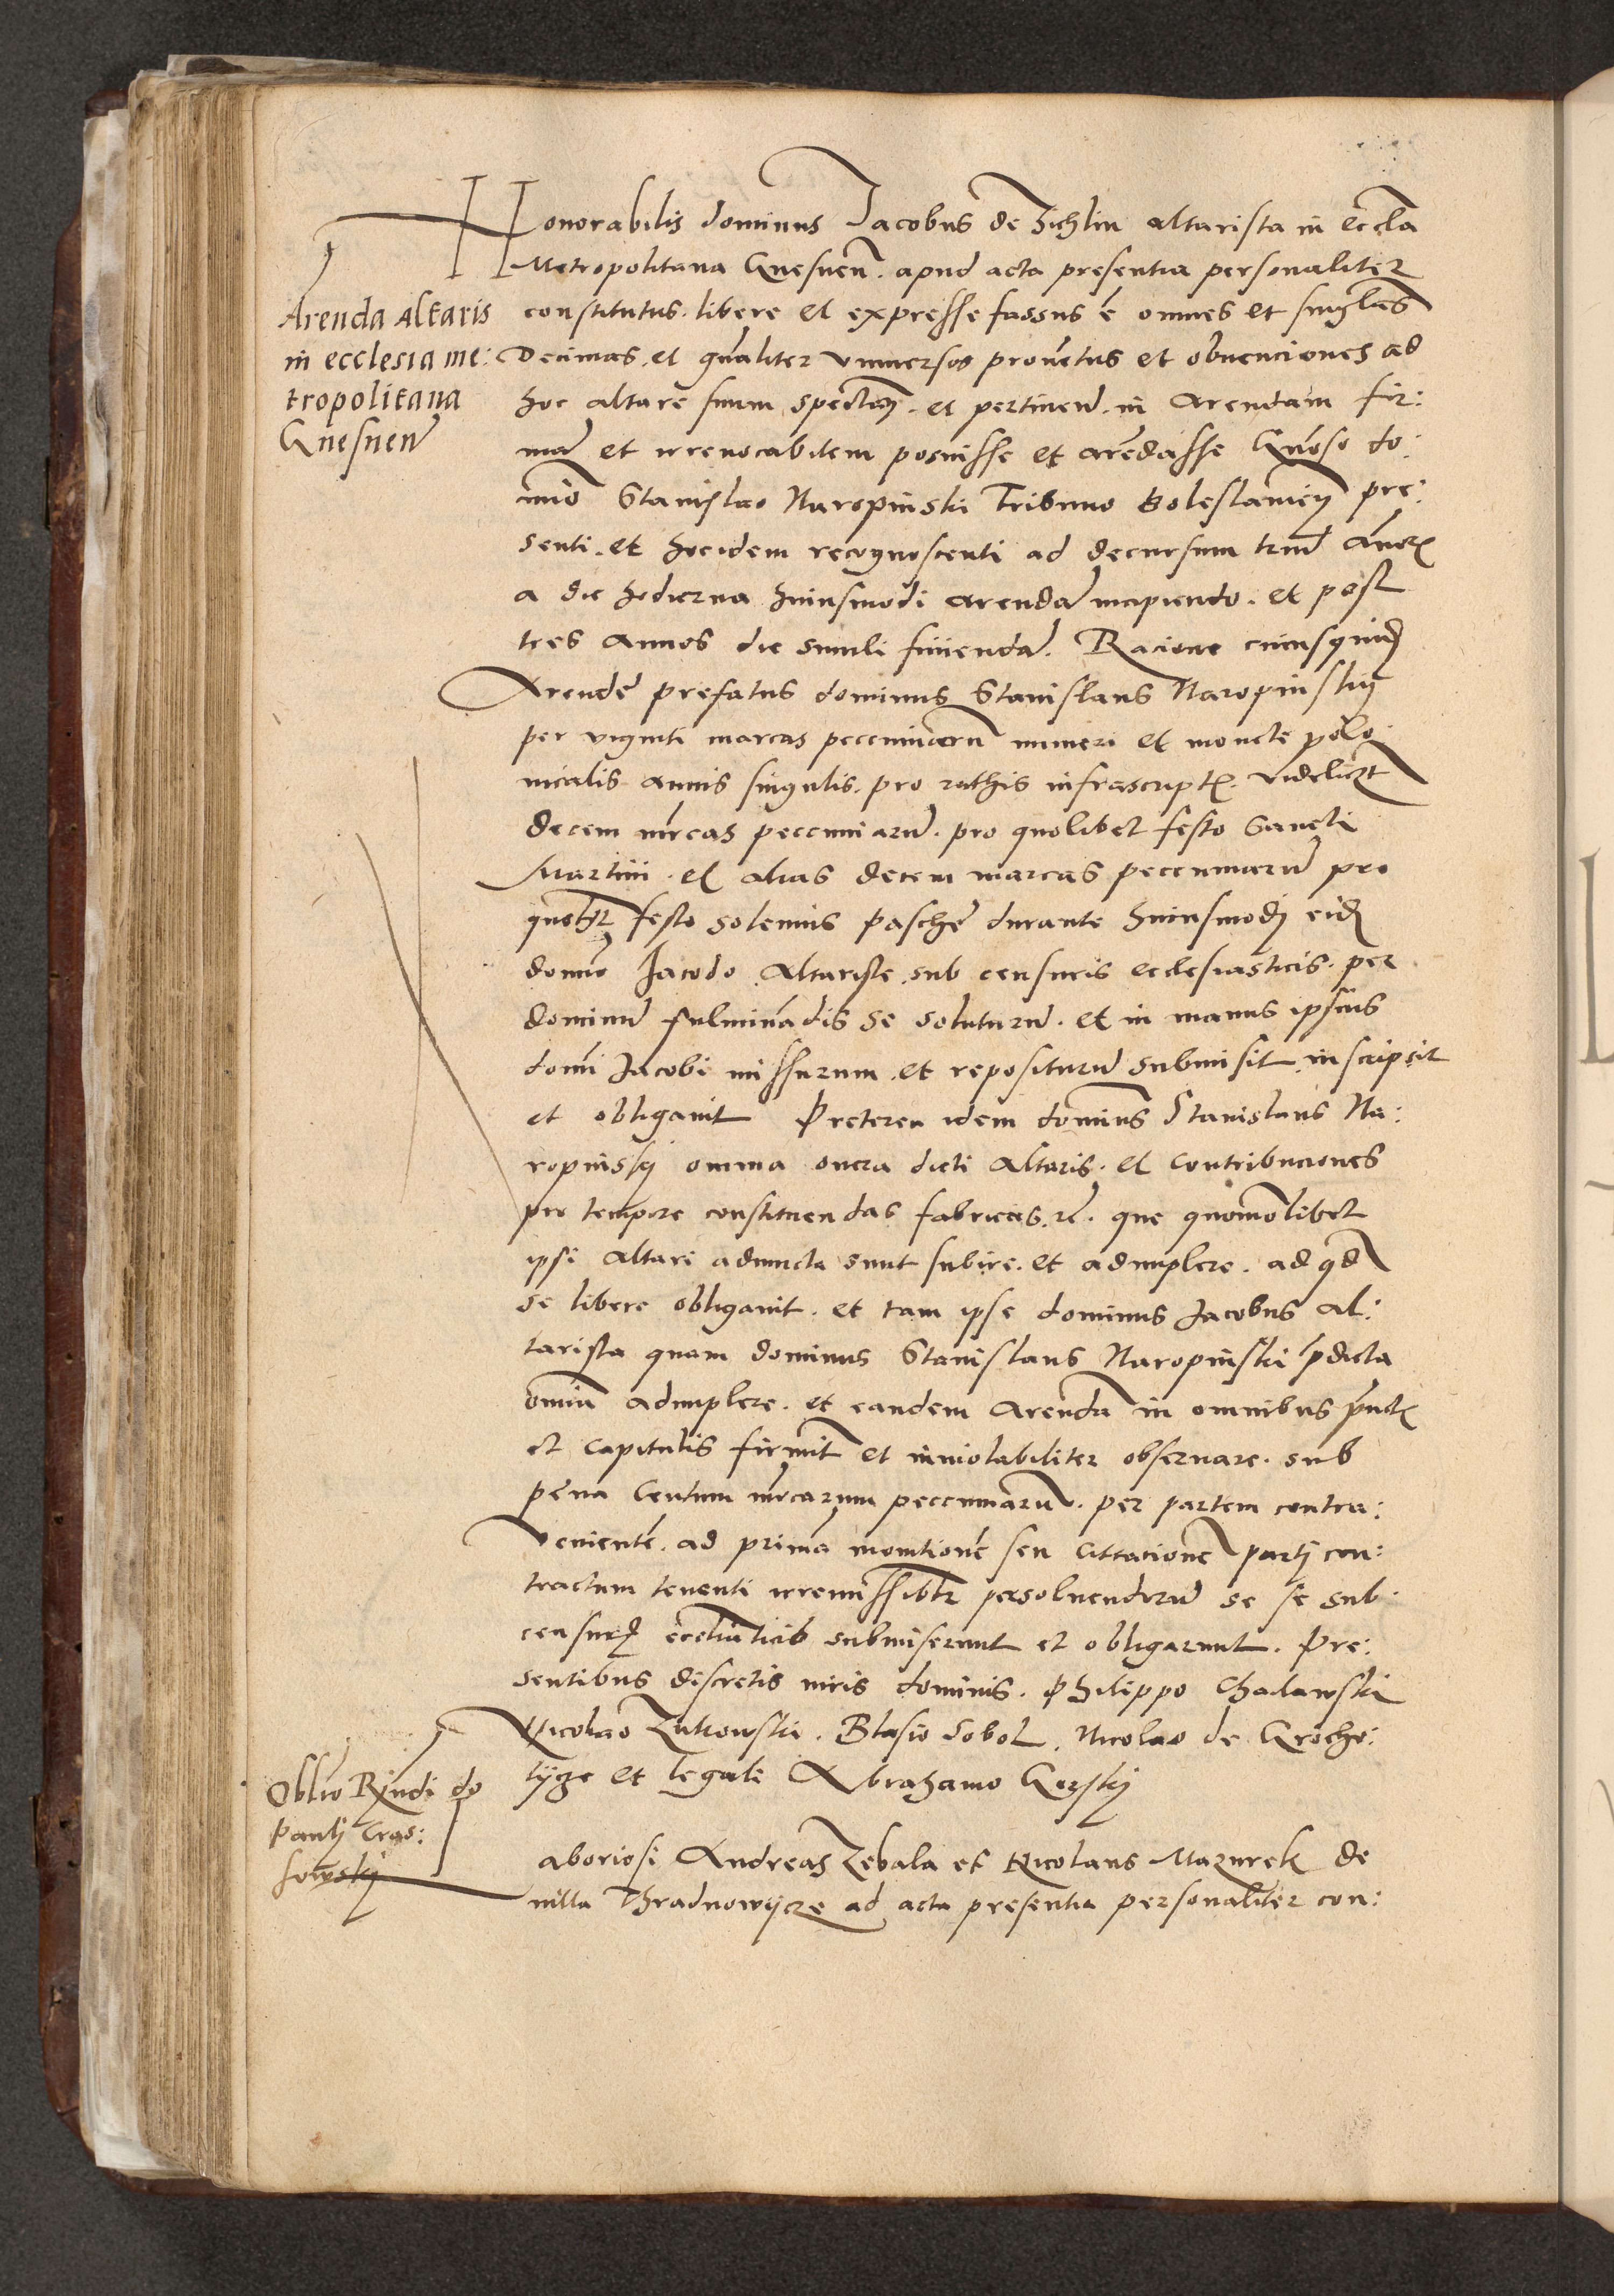 Arenda Altaris
in ecclesia me:
tropolitana
Gnesnen̄
Honorabilis dominus Jacobus de Zichlin altarista in eccl̄a
Metropolitana Gnesnen̄. apud acta presentia personaliter
constitutus. libere et expresse fassus ē omnes et sinḡlas
Decimas. et gn̄aliter vniuersos prouētus et obuenciones ad
hoc altare suum spectan̄. et pertinen̄. in Arendam fir:
mā et irreuocabilem posuisse et arēdasse Gn̄oso do:
mīo Stanislao Naropinski Tribuno Boleslauien̄ pre:
senti. et hocidem recognoscenti ad decursum triū Annoꝝ
a die hodierna huiusmodi arendā incipiendo. et post
tres annos die simili finiendā. Racione cuiusquid̄
Arende prefatus dominus Stanislaus Naropinskij
per viginti marcas pecuniarū numeri et monete polo:
nicalis annis singulis. pro rathis infrascriptꝭ. videlicet
decem mrcas pecuniarū. pro quolibet festo Sancti
Martini. et alias decem marcas pecuniarū pro
quolib̄t festo solennis pasche durante huiusmodi eid̄
domino Jacobo Altariste sub censuris ecclesiasticis. per
dominū fulminādis se soluturū. et in manus ipsius
domi Jacobi missurum. et repositurū submisit inscripsit
et obligauit Preterea idem dominus Stanislaus Na:
ropinskij omnia onera dicti altaris. et contribuciones
pro tempore constituendas fabricas. ꝛc̄. que quomōlibet
ipsi altari adiuncta sunt subire. et adimplere. ad qd̄
se libere obligauit. et tam ipse dominus Jacobus al:
tarista quam dominus Stanislaus Naropinski p̄dicta
omīa adimplere. et eandem arendā in omnibus pūctꝭ
et capitulis firmit̄ et inuiolabiliter obseruare. sub
pena Centum mrcarum pecuniarū. per partem contra:
venientē. ad primā monitionē seu cittacionē parti con:
tractum tenenti irremissibl̄r persoluendarū se se sub
censurꝭ eccl̄iasticis submiserunt et obligarunt. Pre:
sentibus discretis viris dominis. Philippo Chalawski
Nicolao Zukowski. Blasio Sobol. Nicolao de Grocho:
lijcze et legali Abrahamo Gorskij
do
Paulj Cras:
sowskij
Laboriosi Andreas Zebala et Nicolaus Mazurek de
villa Thradnowijcze ad acta presentia personaliter con: